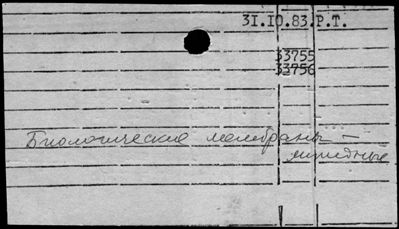 31.10.83.P.T.
33755
33756
Биологические мембраны —
липидные